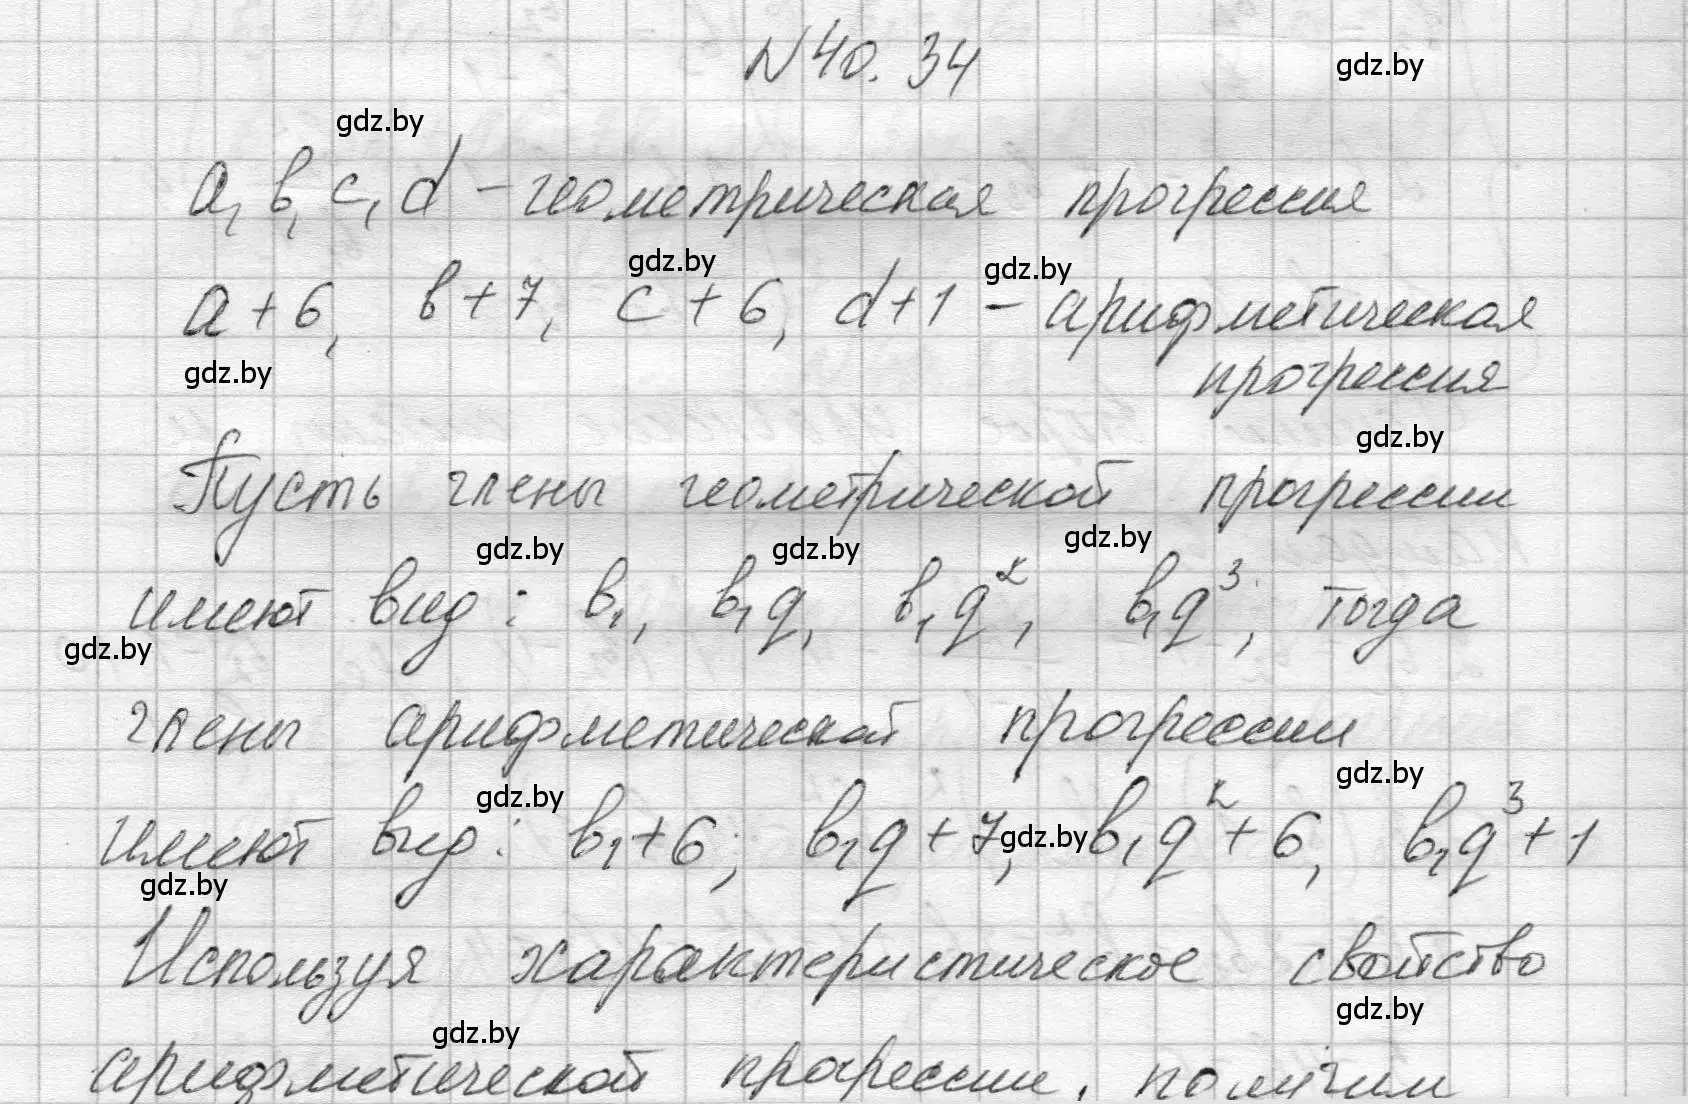 N40.34
gdz.by
gdz.by
a, b, c, d - геометрическая прогрессия
gdz.by
gdz.by
a+6, b+7, c+6, d+1 - арифметическая
gdz.by
прогрессия
gdz.by
Пусть члены геометрической прогрессии
gdz.by
gdz.by
gdz.by
имеют вид: b₁, b₁q, b₁q², b₁q³, тогда
gdz.by
члены арифметической прогрессии
gdz.by
gdz.by
имеют вид: b₁+6; b₁q+7, b₁q²+6, b₁q³+1
gdz.by
gdz.by
Используя характеристическое свойство
gdz.by
gdz.by
арифметической прогрессии, получим